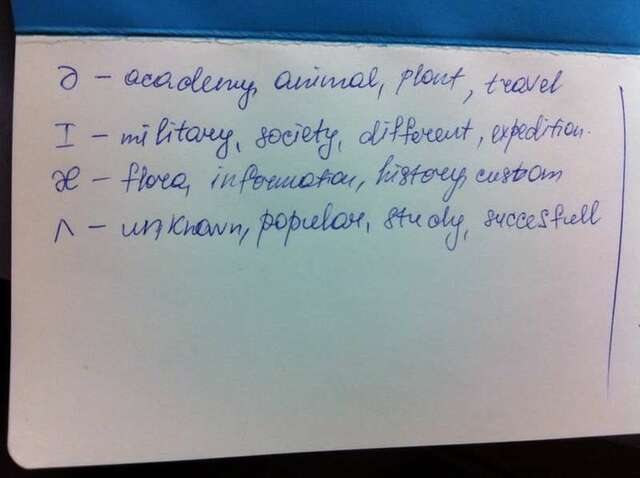 ə – academy, animal, plant, travel
I – military, society, different, expedition.
æ – flora, information, history, custom
ʌ – unknown, popular, study, succesfull